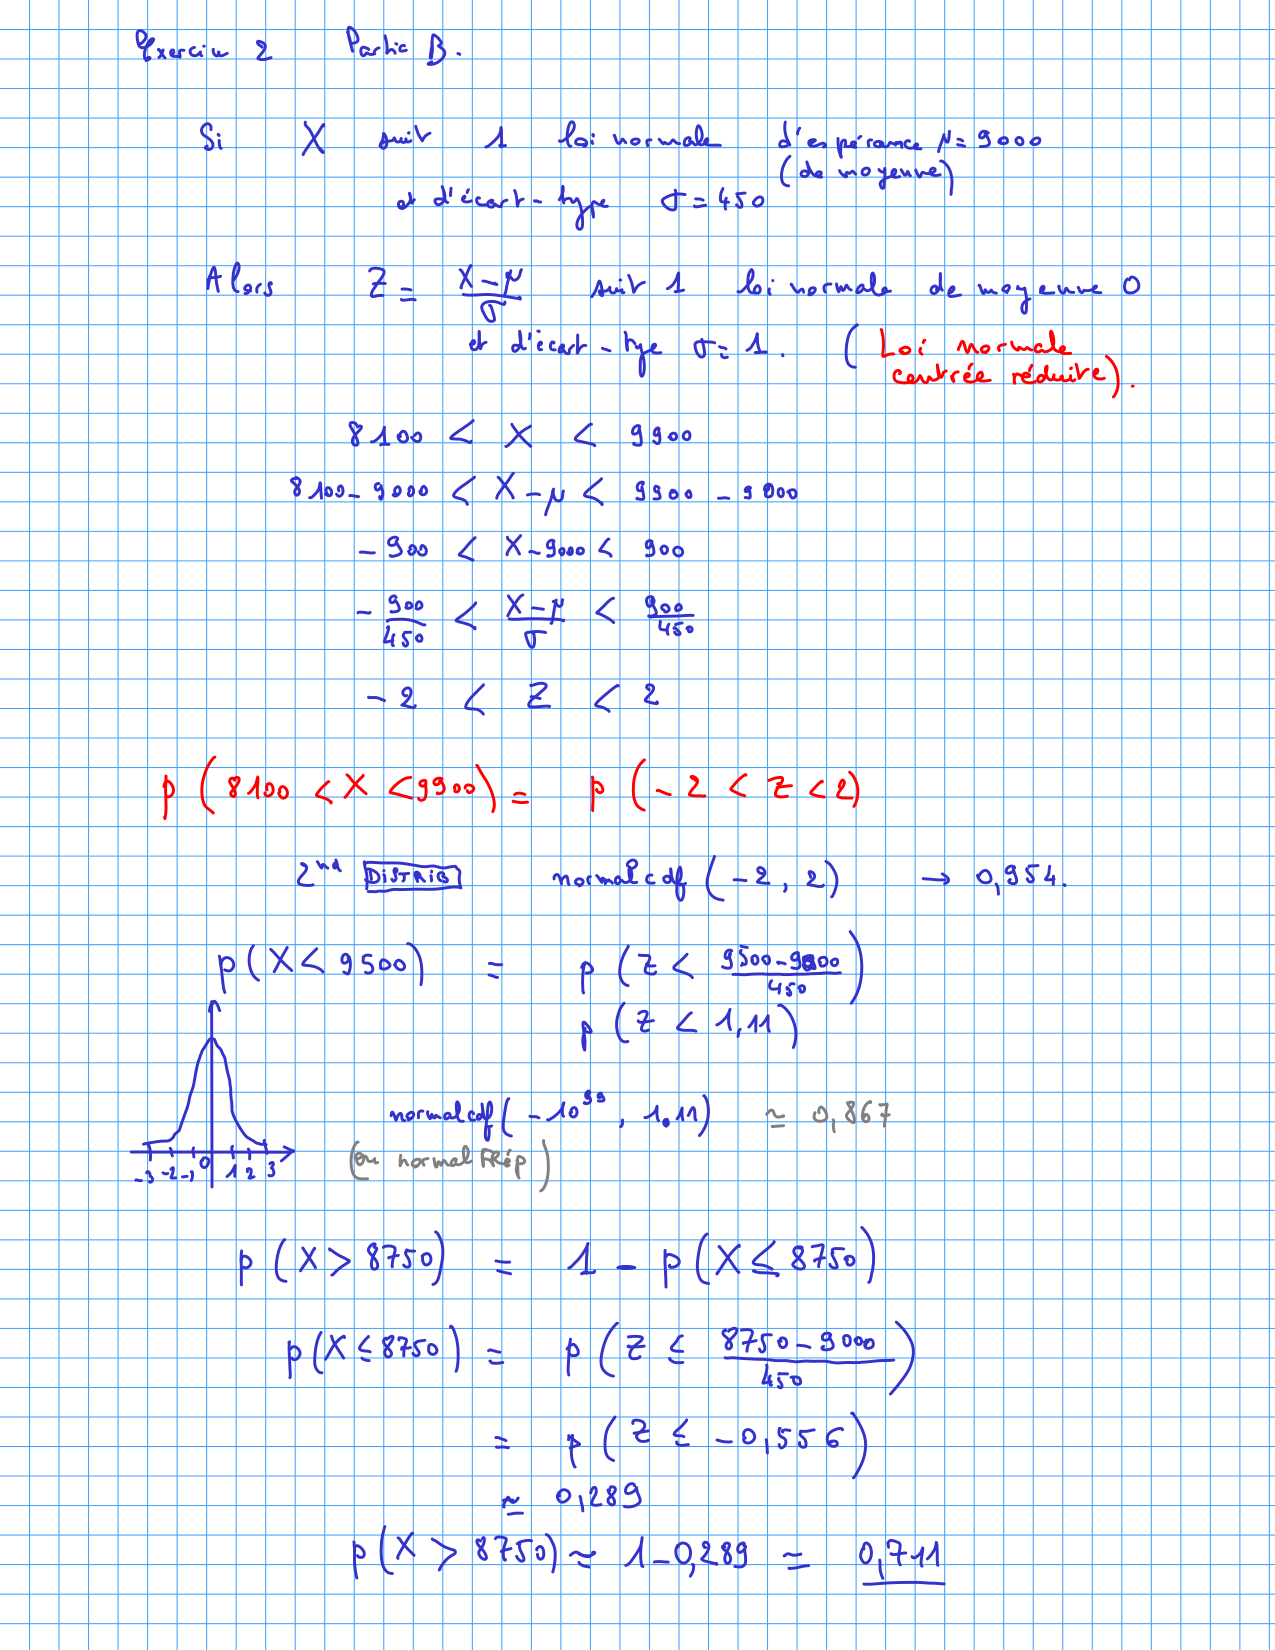 Exercice 2 Partie B.
Si X suit 1 loi normale d'espérance μ = 9000
(de moyenne)
et d'écart-type σ = 450
Alors Z = (X-μ)/σ suit 1 loi normale de moyenne 0
et d'écart-type σ = 1. (Loi normale
centrée réduite).
8100 < X < 9900
8100-9000 < X-μ < 9900-9000
-900 < X-9000 < 900
-900/450 < (X-μ)/σ < 900/450
-2 < Z < 2
p(8100 < X < 9900) = p(-2 < Z < 2)
2nd DISTRIB normalcdf(-2, 2) → 0,954.
p(X < 9500) = p(Z < (9500-9000)/450)
p(Z < 1,11)
normalcdf(-10^99, 1.11) ≃ 0,867
(ou normalFRép)
-3 -2 -1 0 1 2 3
p(X > 8750) = 1 - p(X ≤ 8750)
p(X ≤ 8750) = p(Z ≤ (8750-9000)/450)
= p(Z ≤ -0,556)
≃ 0,289
p(X > 8750) ≃ 1-0,289 ≃ 0,711